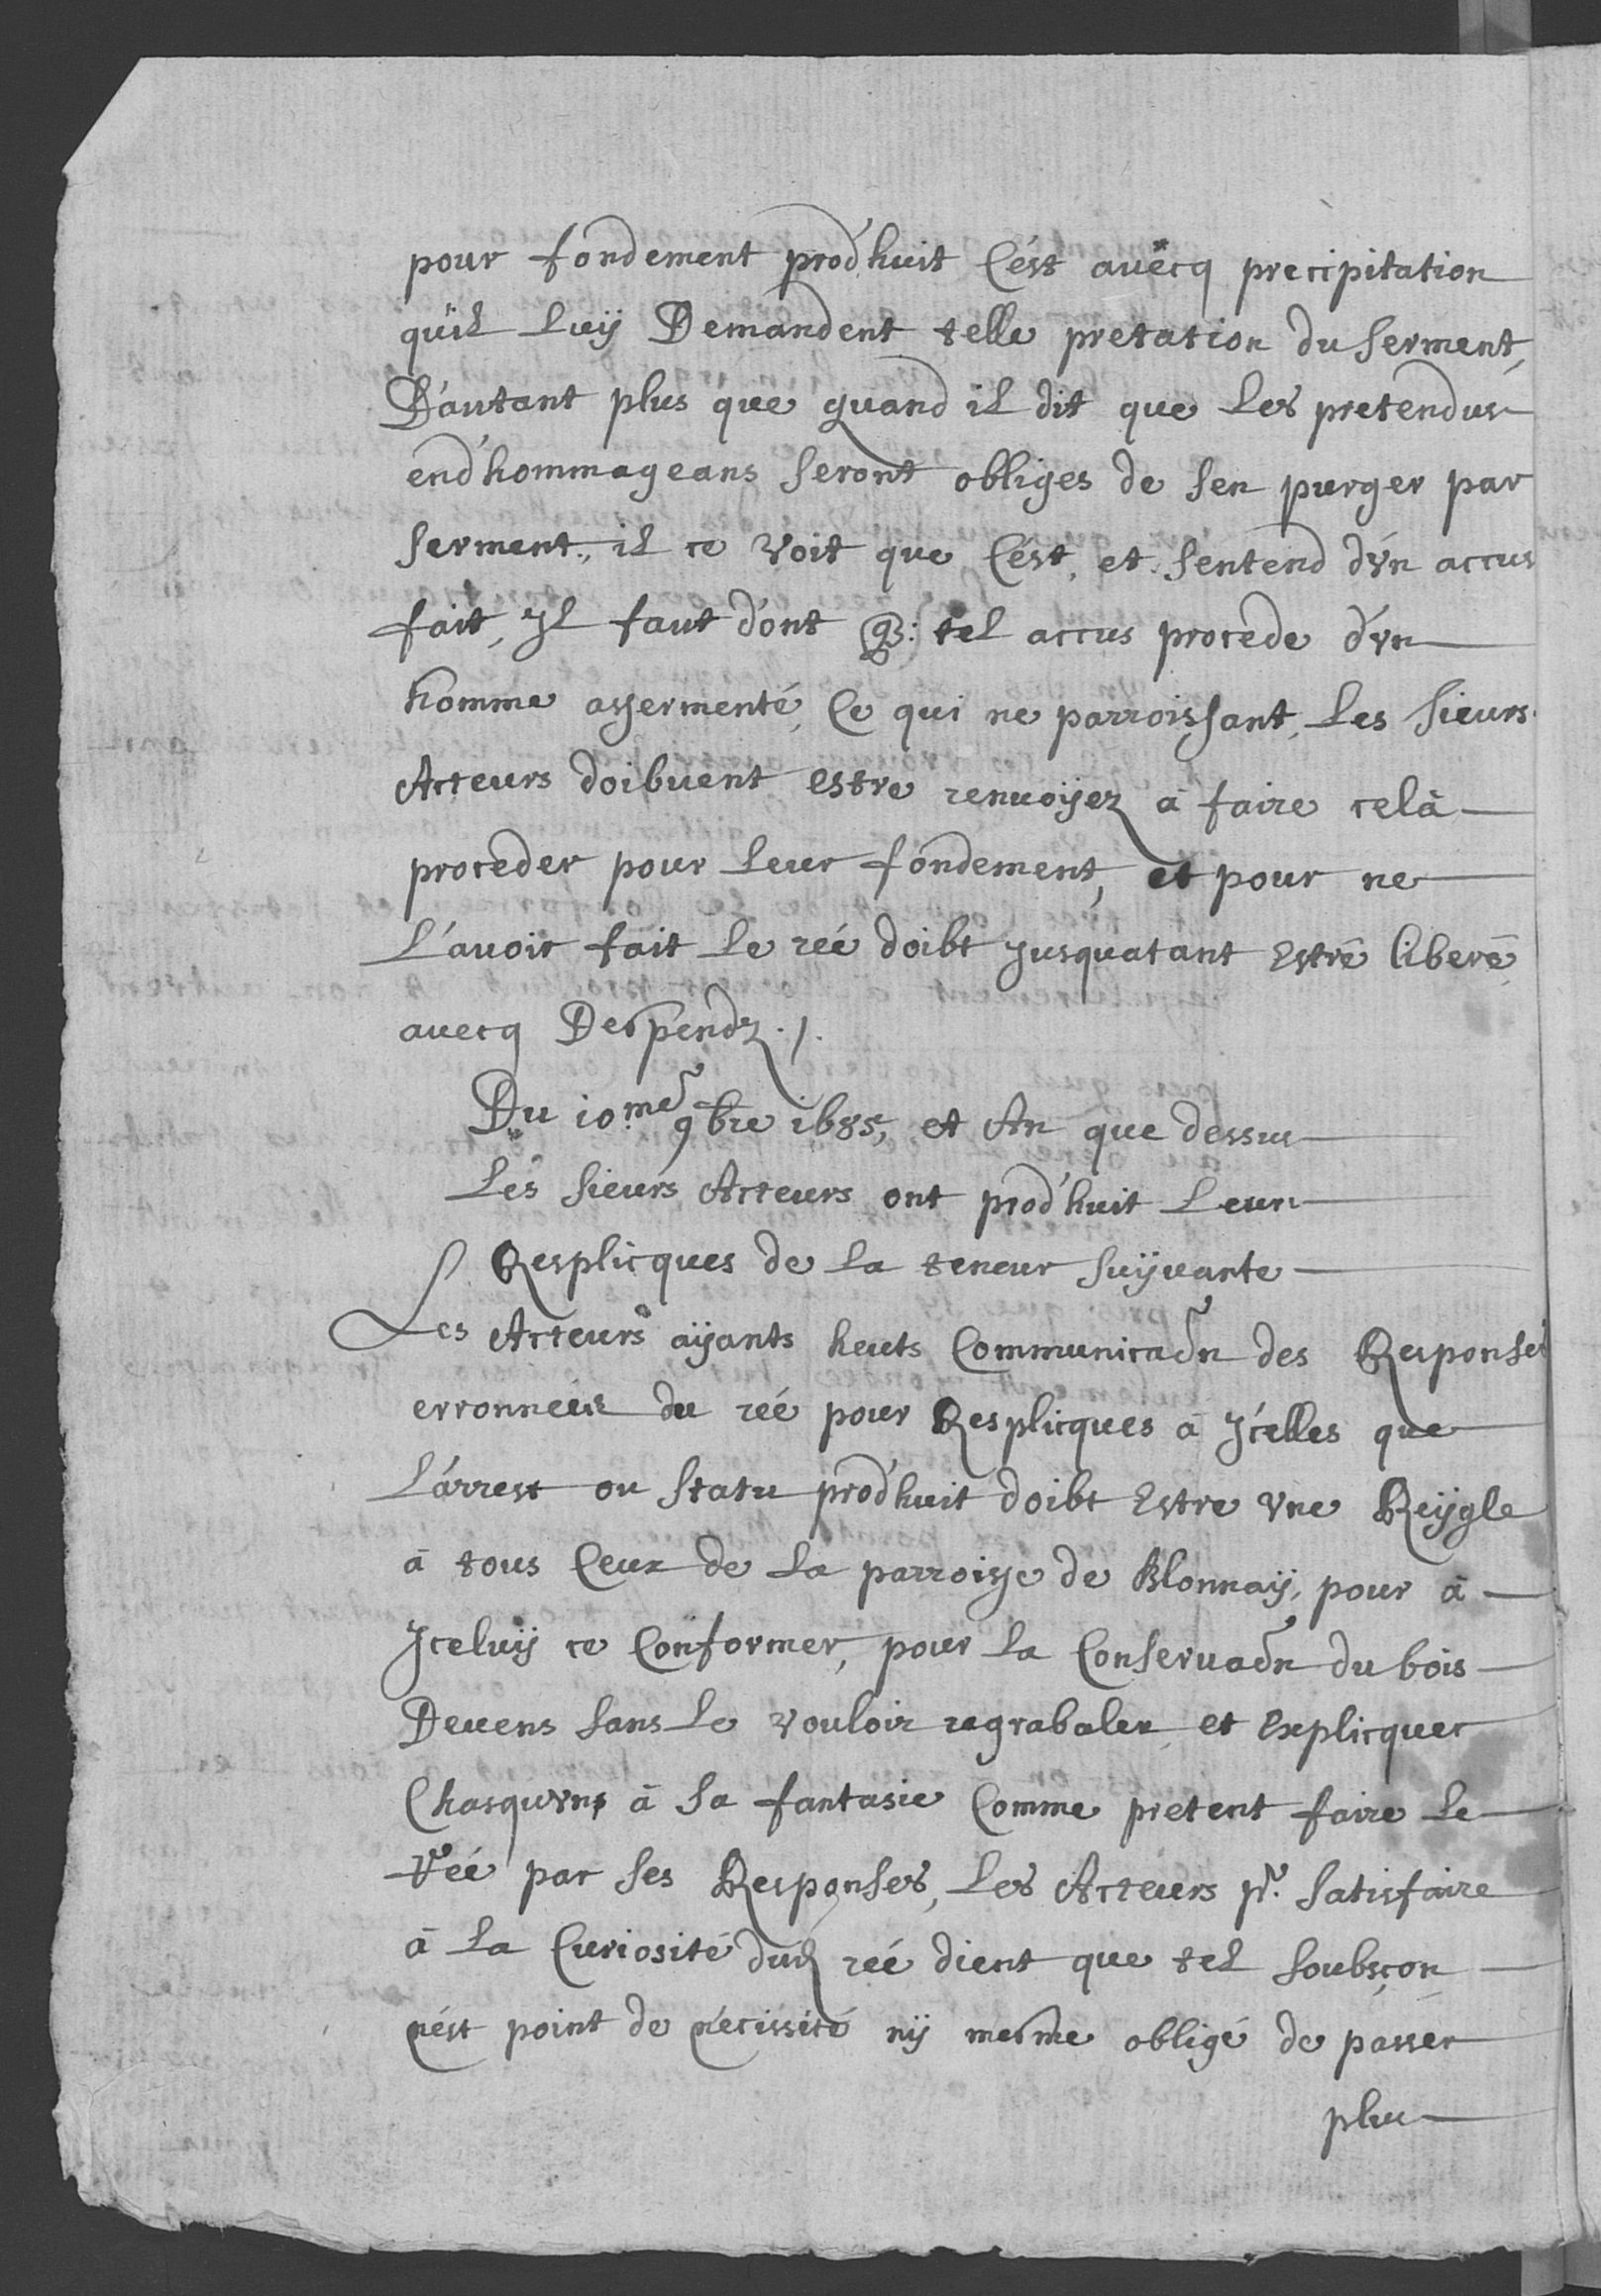 pour fondement prod'huit C'est auëcq precipitation
qu'il Luÿ Demandent telle pretation du serment,
D'autant plus que quand il dit que Les pretendus
end'hommageans seront obliges de sen purger par
serment, il ce voit que C'est, et sentend d'vn accus
fait, Jl faut d'ont q3: tel accus procede d'vn
homme assermenté, Ce qui ne parroissant, Les sieurs
Acteurs doibuent estre renuoÿez à faire celà
proceder pour Leur fondement, et pour ne
L'auoir fait Le reé doibt jusquatant Estre liberé
auecq Despendz ./.
Du 10.me 9bre 1685, et An que dessus
Les sieurs Acteurs ont prod'huit Leurs
Resplicques de La teneur suÿuante
Les Acteurs aÿants heuts Communicaôn des Responses
erronneés du reé pour Resplicques à Jcelles que
L'arrest ou statu prod'huit doibt Estre vne Reÿgle
à tous Ceux de La parroisse de Blonnaÿ, pour à
Jceluÿ ce Conformer, pour La Conseruaôn du bois
Deuens sans Le vouloir regrabaler et Explicquer
Chasquvns à sa fantasie Comme pretent faire Le
reé par ses Responses, Les Acteurs pr. satisfaire
à La Curiosité dud reé dient que tel soubsçon
n'est point de nécissité nÿ mesme obligé de passer
plus